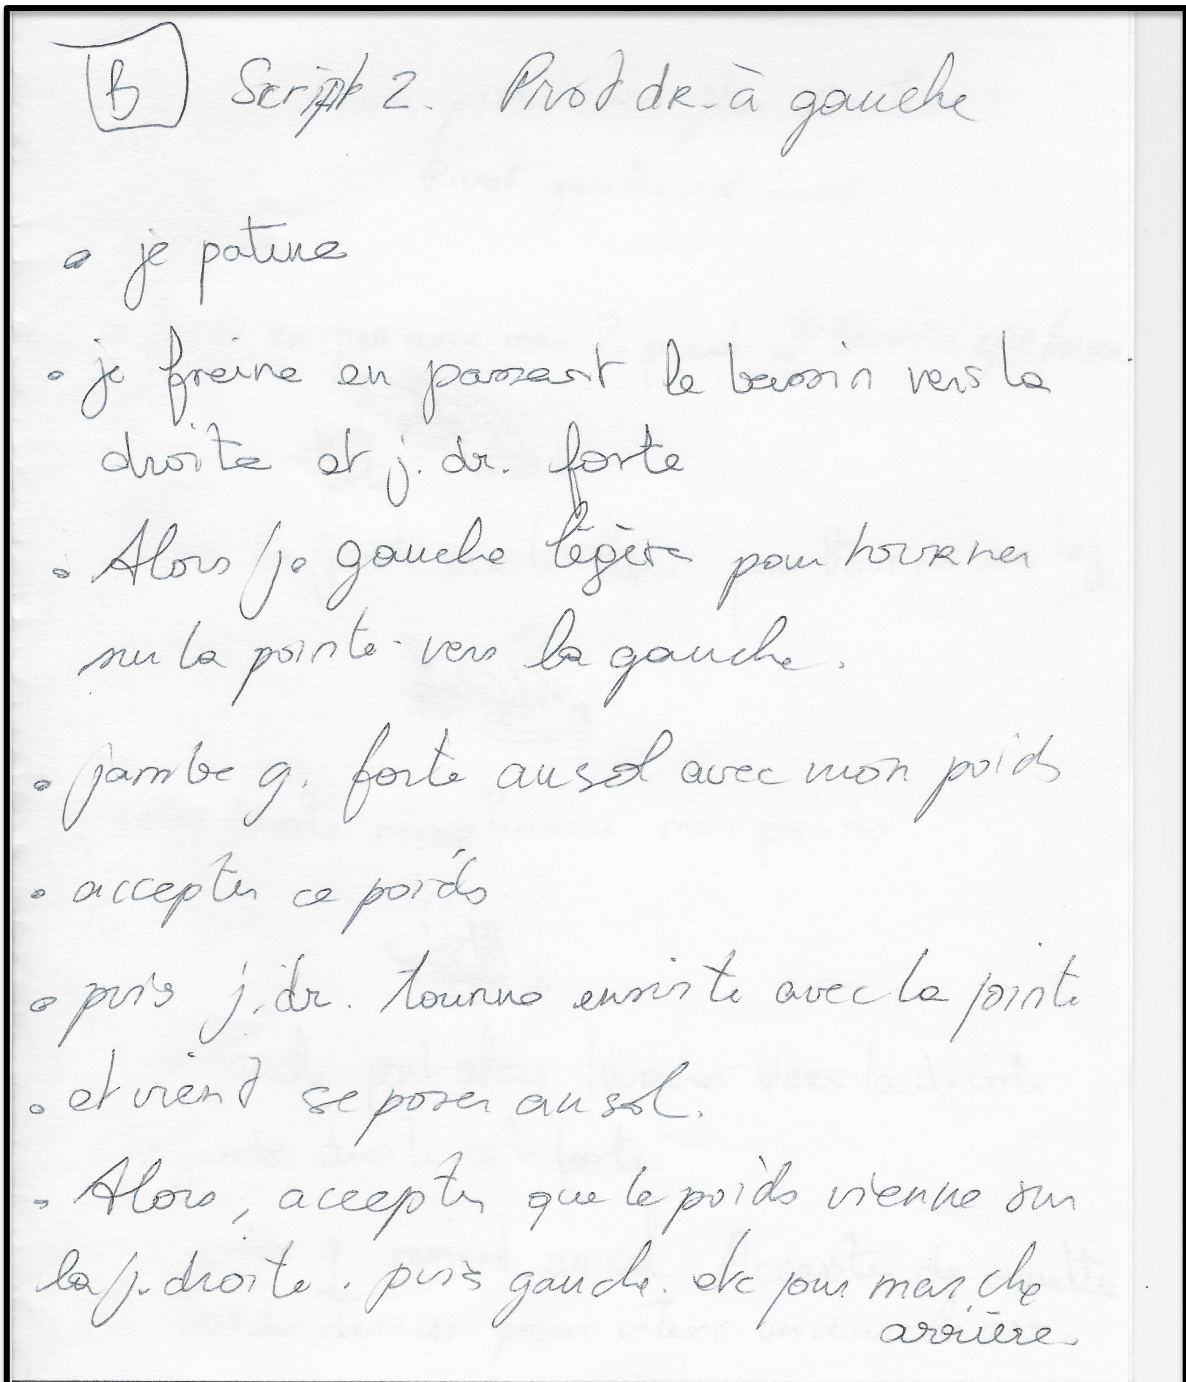 B Script 2. Pivot dr. à gauche
• je patine
• je freine en passant le bassin vers la
droite et j. dr. forte
• Alors j. gauche légère pour tourner
sur la pointe vers la gauche.
• jambe g. forte au sol avec mon poids
• accepter ce poids
• puis j. dr. tourne ensuite avec la pointe
• et vient se poser au sol.
• Alors, accepter que le poids vienne sur
la j. droite. puis gauche. etc pour marche
arrière